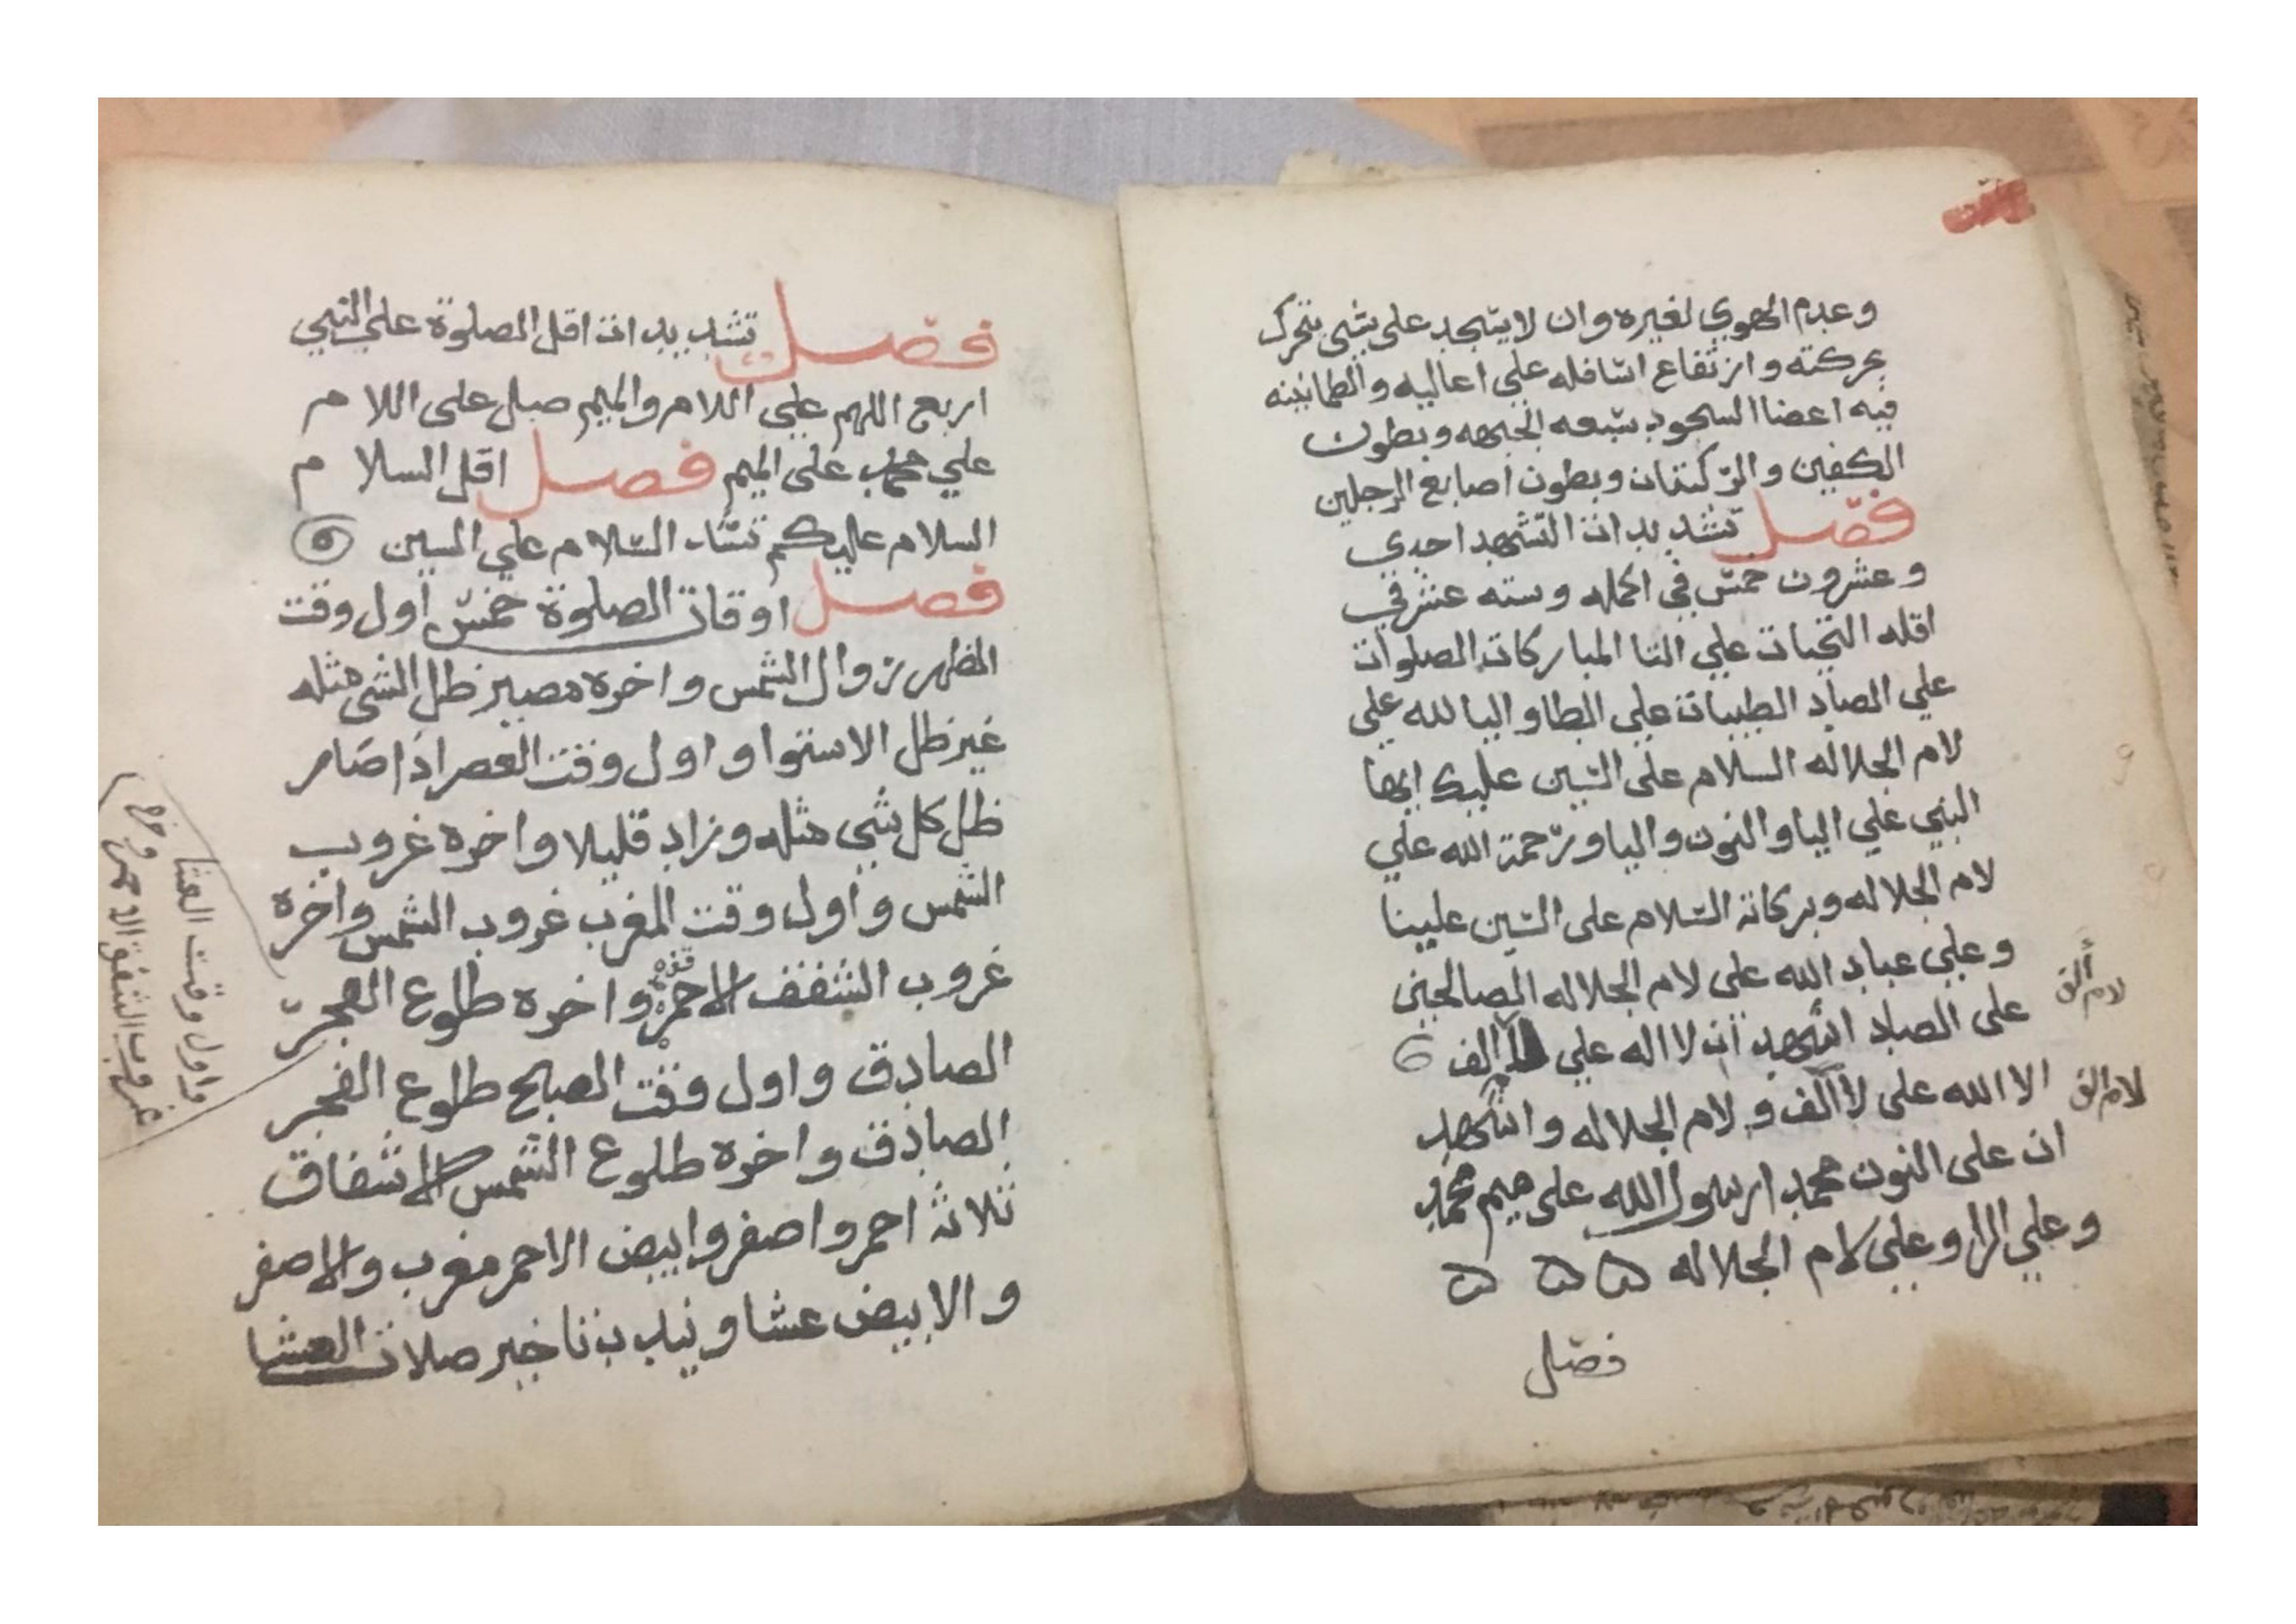 وعدم الهوي لغيره وان لا يسجد على شي يتحرك
بحركته وارتفاع اسافله علي اعاليه والطمانينه
فيه اعضا السجود سبعه الجبهه وبطون
الكفين والركبتان وبطون اصابع الرجلين
فصل تشديدات التشهد احدي
وعشرون خمس في اكمله وسته عشر في
اقله التحيات علي التا المباركات الصلوات
علي الصاد الطيبات علي الطا واليا لله علي
لام الجلاله السلام على السين عليك ايها
النبي علي اليا والنون واليا ورحمة الله علي
لام الجلاله وبركاته السلام على السين علينا
وعلي عباد الله على لام الجلاله الصالحين
على الصاد اشهد ان لا اله علي الف
لام الف
الا الله على لا الف و لام الجلاله واشهد
لام الف
ان على النون محمدا رسول الله على ميم محمد
وعلي الرا وعلي لام الجلاله ه ه ه
فصل
فصل تشديدات اقل الصلوة علي النبي
اربع اللهم علي اللام والميم صل على اللام
علي محمد على الميم فصل اقل السلام
السلام عليكم تشد السلام علي السين
فصل اوقات الصلوة خمس اول وقت
الظهر زوال الشمس واخره مصير ظل الشي مثله
غير ظل الاستوا واول وقت العصر اذا صار
ظل كل شي مثله وزاد قليلا واخره غروب
الشمس واول وقت المغرب غروب الشمس واخره
غروب الشفف الاحمر واخره طلوع الفجر
الصادق واول وقت الصبح طلوع الفجر
الصادق واخره طلوع الشمس الاشفاق
ثلاثة احمر واصفر وابيض الاحمر مغرب والاصفر
والابيض عشا ويندب تاخير صلات العشا
واول وقت العشا
غروب الشفق الاحمر